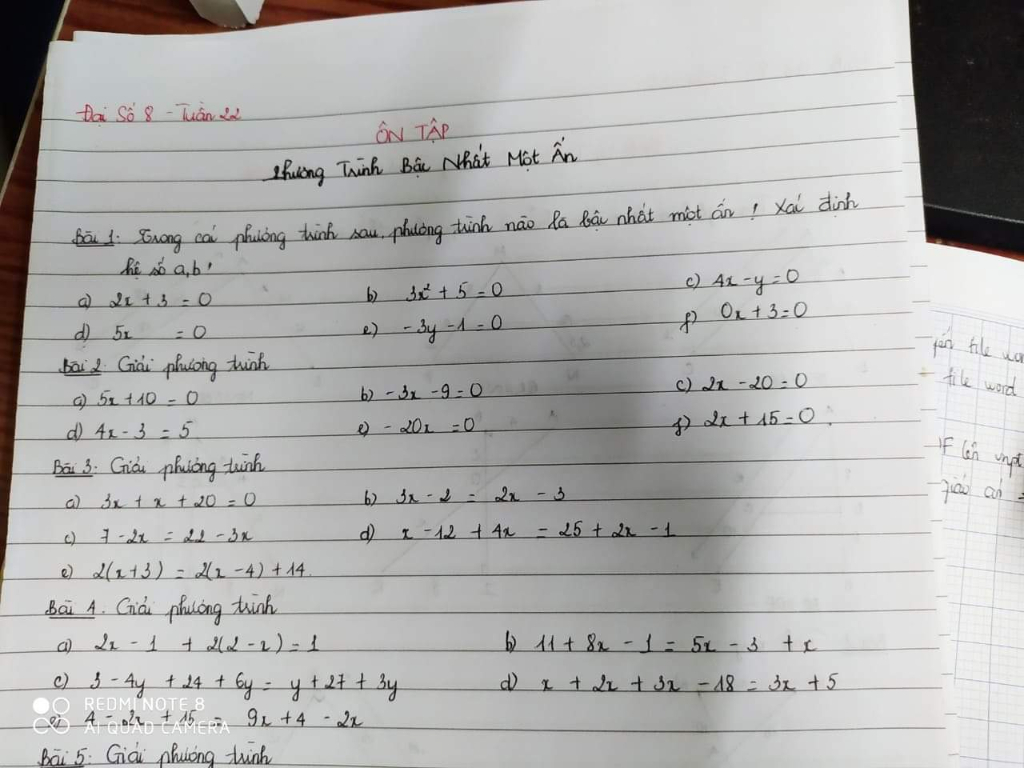 Đại Số 8 - Tuần 22
ÔN TẬP
Phương Trình Bậc Nhất Một Ẩn
Bài 1: Trong các phương trình sau, phương trình nào là bậc nhất một ẩn ! Xác định
hệ số a,b'
a) 2x + 3 = 0 b) 3x² + 5 = 0 c) 4x - y = 0
d) 5x = 0 e) - 3y - 1 = 0 f) 0x + 3 = 0
Bài 2: Giải phương trình
a) 5x + 10 = 0 b) - 3x - 9 = 0 c) 2x - 20 = 0
d) 4x - 3 = 5 e) - 20x = 0 f) 2x + 15 = 0.
Bài 3: Giải phương trình
a) 3x + x + 20 = 0 b) 3x - 2 = 2x - 3
c) 7 - 2x = 22 - 3x d) x - 12 + 4x = 25 + 2x - 1
e) 2(x+3) = 2(x - 4) + 14.
Bài 4. Giải phương trình
a) 2x - 1 + 2(2 - x) = 1 b) 11 + 8x - 1 = 5x - 3 + x
c) 3 - 4y + 24 + 6y = y + 27 + 3y d) x + 2x + 3x - 18 = 3x + 5
e) 4 - 2x + 15 = 9x + 4 - 2x
Bài 5: Giải phương trình
file word
REDMI NOTE 8
AI QUAD CAMERA